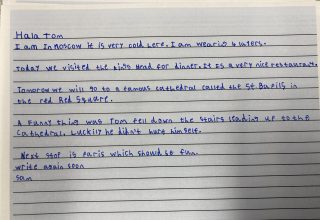 Hala Tom
I am in moscow it is very cold here. I am wearing 4 vaters.
Today we visited the king Head for dinner. It is a very nice restaurant.
Tomorow we will go to a famous cathedral called the St. Basills in
the red Red Square.
A Funny thing was Tom fell down the stairs leading up to the
Cathedral. Luckily he didn't hurt himself.
Next stop is Paris which should be fun.
write again soon
Sam